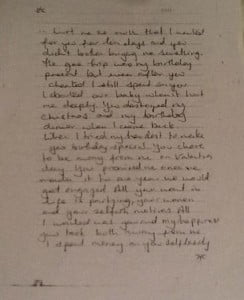 it hurt me so much that I waited
for you for ten days and you
didn't bother buying me something.
The goa trip was my birthday
present but even after you
cheated I still spent on you
I aborted our baby when it hurt
me deeply. You destroyed my
Christmas and my birthday
dinner when I came back.
When I tried my hardest to make
you birthday special. You chose
to be away from me on Valentine
day. You promised me once we
made it to one year we would
get engaged. All you want in
life is partying, your women
and your selfish motives. All
I wanted was you and my happiness
you took both away from me.
I spend money on you selflessly